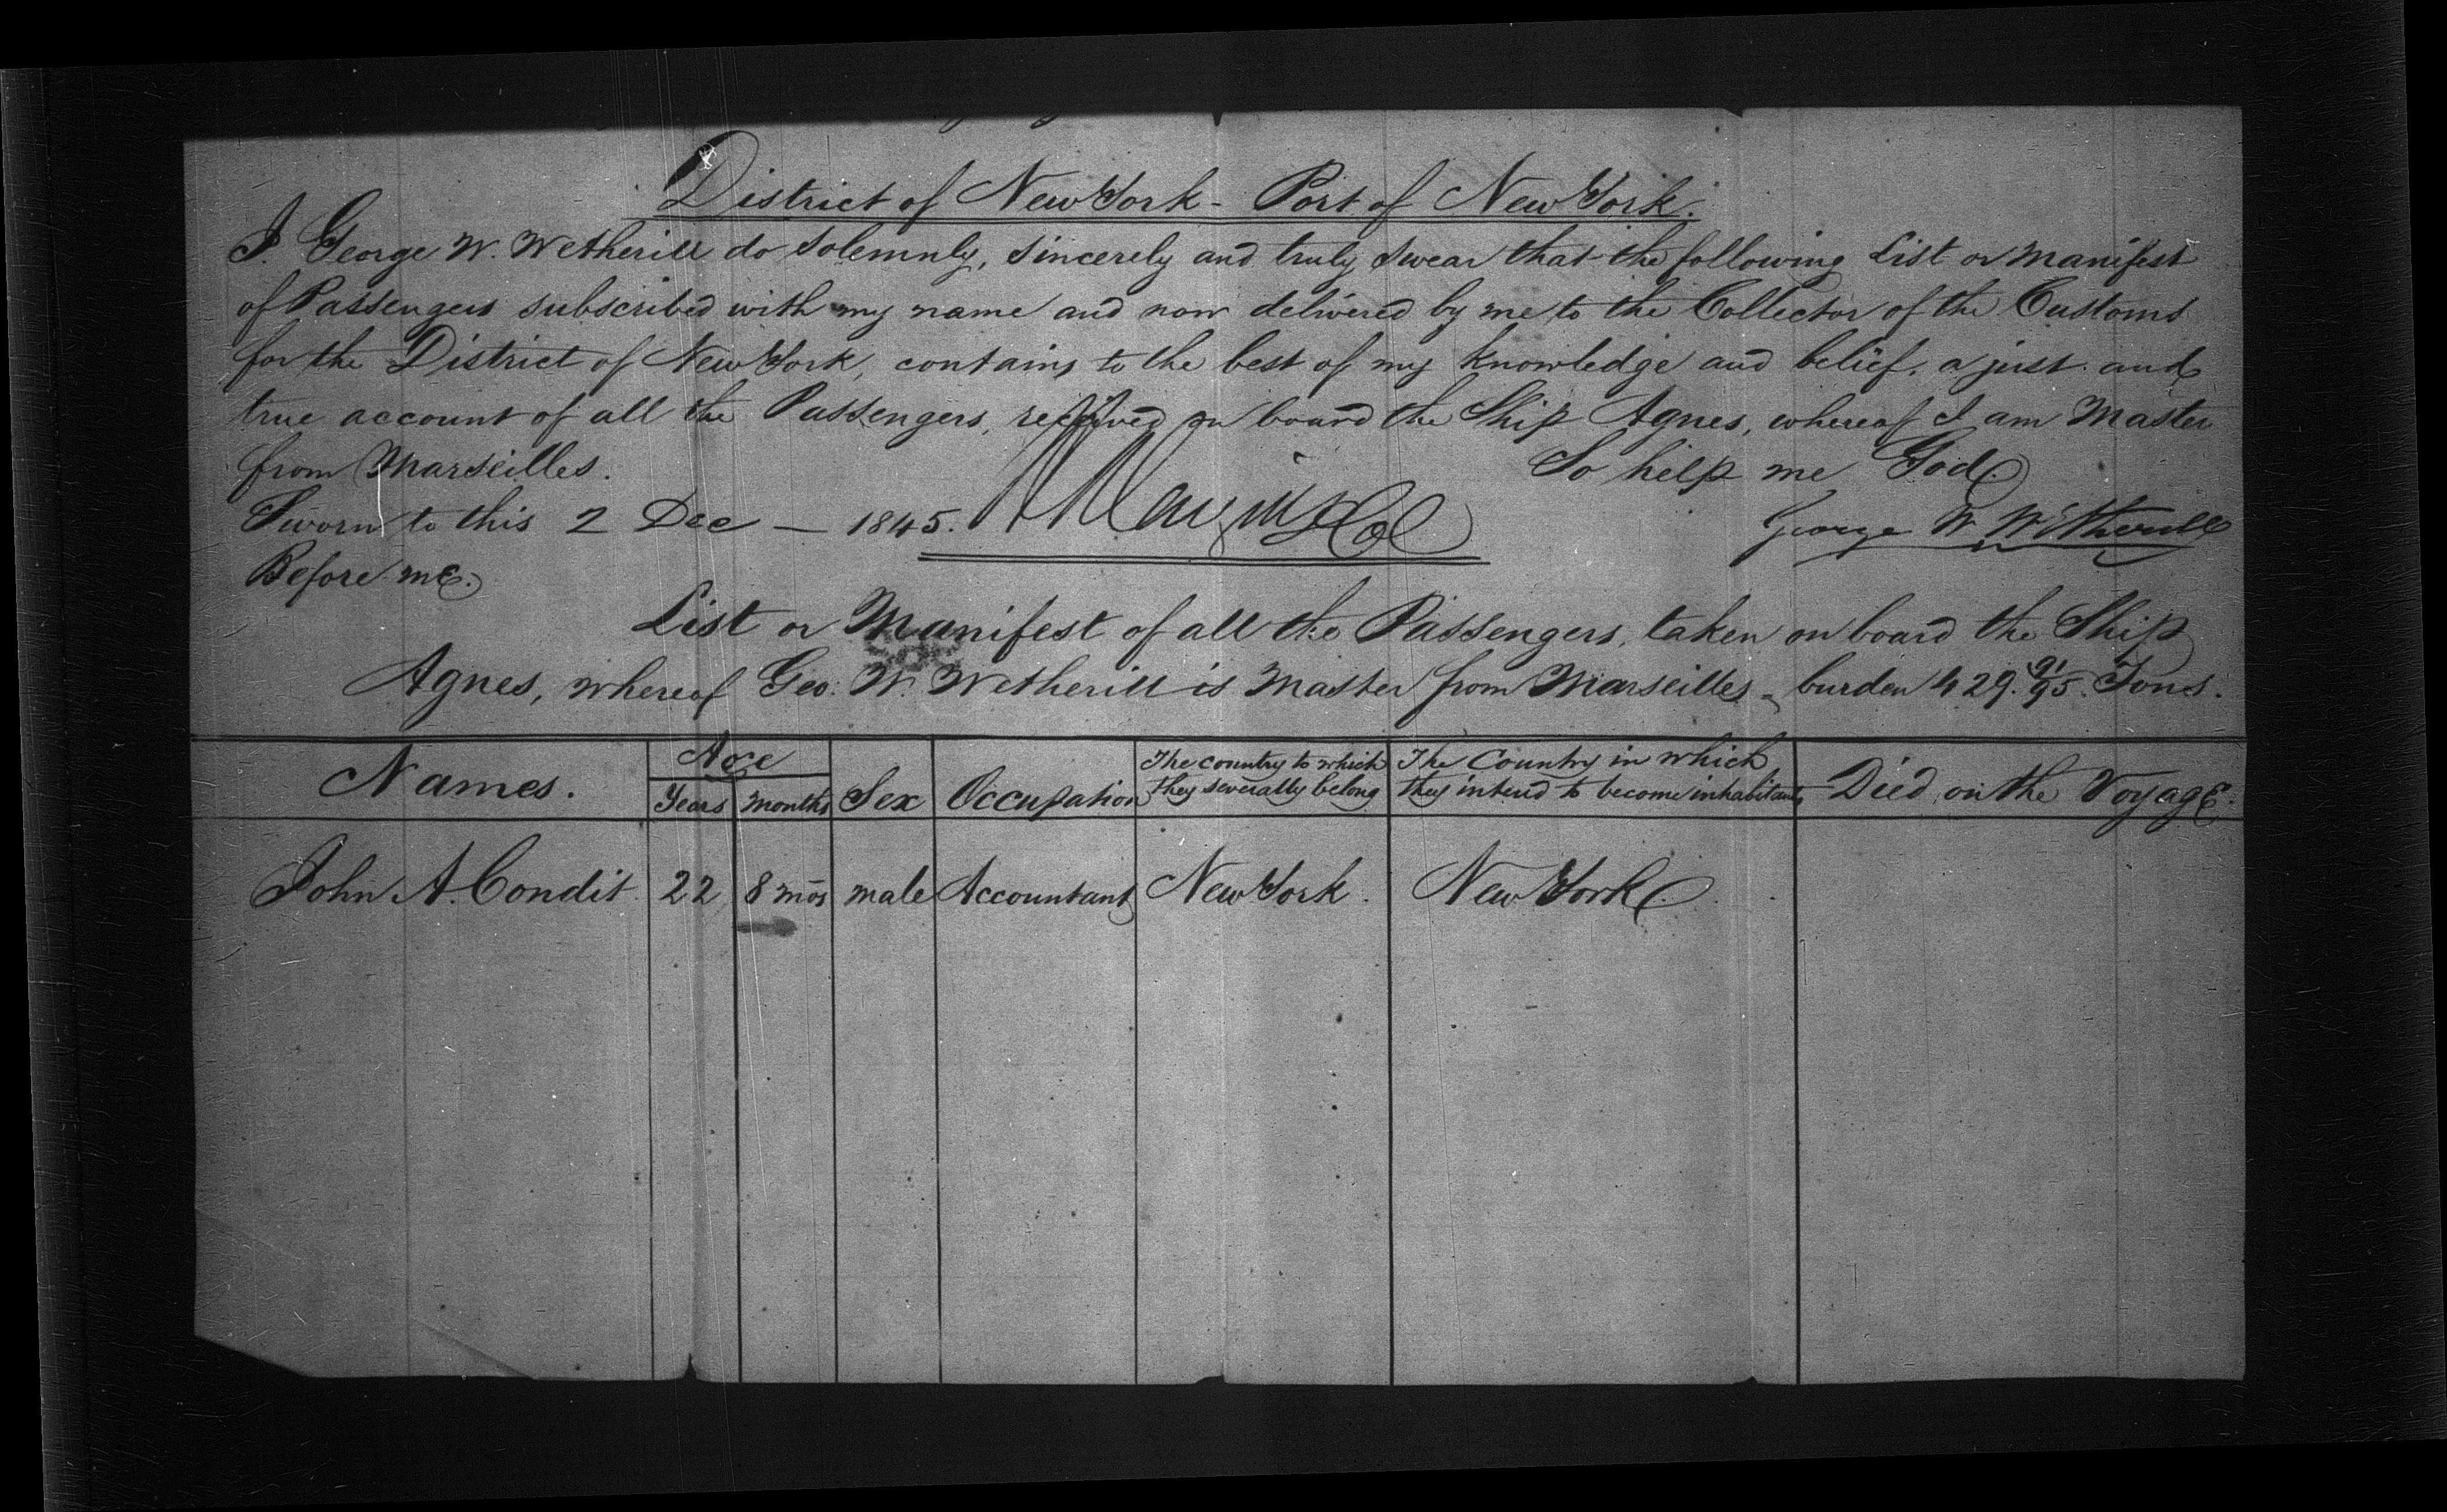 District of New York - Port of New York.
I. George W. Wetherill do solemnly, sincerely and truly swear that the following List or Manifest
of Passengers subscribed with my name and now delivered by me to the Collector of the Customs
for the District of New York, contains to the best of my knowledge and belief, a just and
true account of all the Passengers, received on board the Ship Agnes, whereof I am Master
from Marseilles. So help me God.
Sworn to this 2 Dec — 1845. George W. Wetherill
Before me.
List or Manifest of all the Passengers, taken on board the Ship
Agnes, whereof Geo: W. Wetherill is Master from Marseilles - burden 429. 91/95. Tons.
Names. Age Years Months Sex Occupation The country to which they severally belong The Country in which they intend to become inhabitants Died on the Voyage.
John A. Condit. 22 8 mos male Accountant New York. New York.